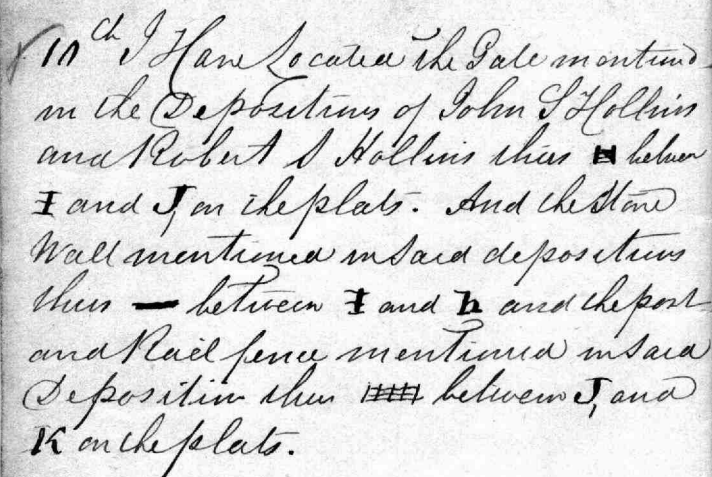 10th I Have Located the Gate mentioned
in the Depositions of John S Hollins
and Robert S Hollins thus H between
I and J, on the plats. And the Stone
Wall mentioned in Said depositions
thus — between I and h and the post
and Rail fence mentioned in Said
Deposition thus between J, and
K on the plats.